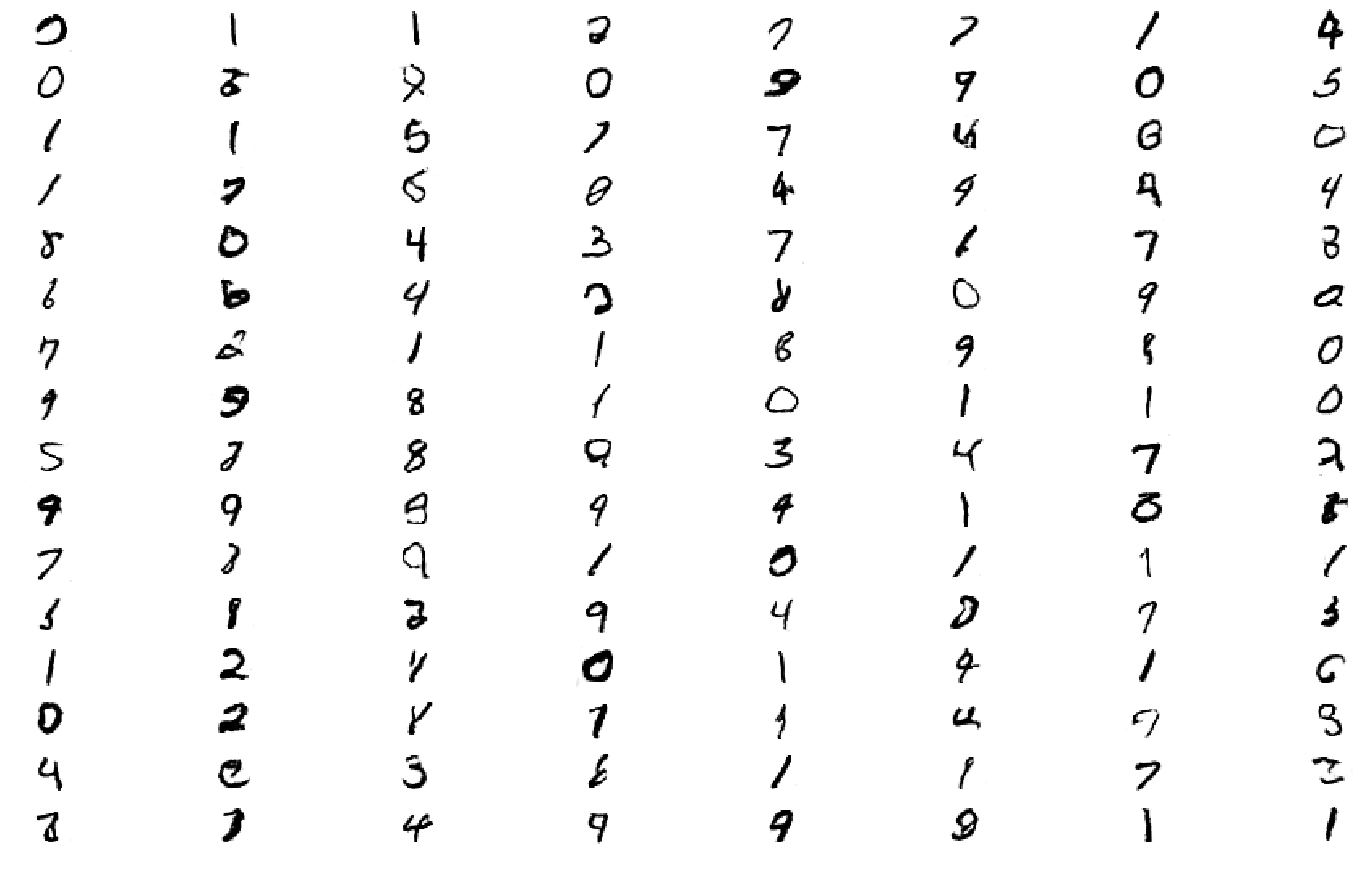 1 1 2 7 7 1 4
0 8 8 0 9 9 0 5
1 1 5 7 7 4 8 0
1 7 6 8 4 9 9 4
8 0 4 3 7 1 7 3
6 6 4 2 8 0 9 2
7 2 1 1 8 9 8 0
9 9 8 1 0 1 1 0
5 8 8 9 3 4 7 2
9 9 9 9 9 1 8
7 8 9 1 0 1 1 1
8 2 9 4 0 7 3
1 2 4 0 1 9 1 6
0 2 8 7 1 4 7 9
4 2 3 8 1 1 7 2
3 7 4 9 9 8 1 1